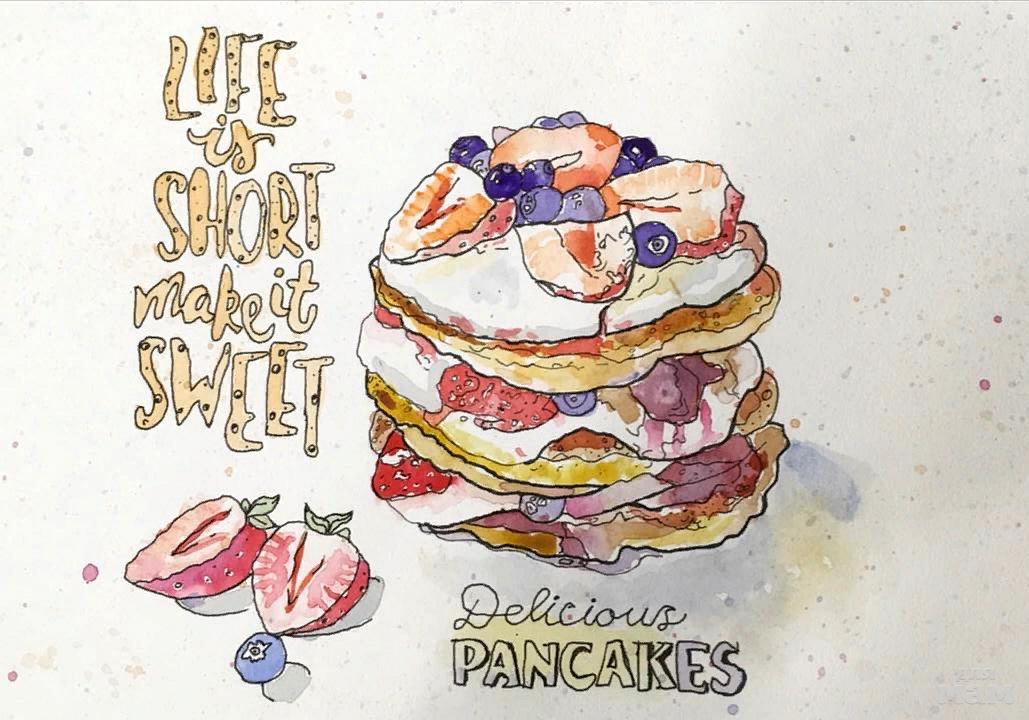 LIFE
is
SHORT
make it
SWEET
Delicious
PANCAKES